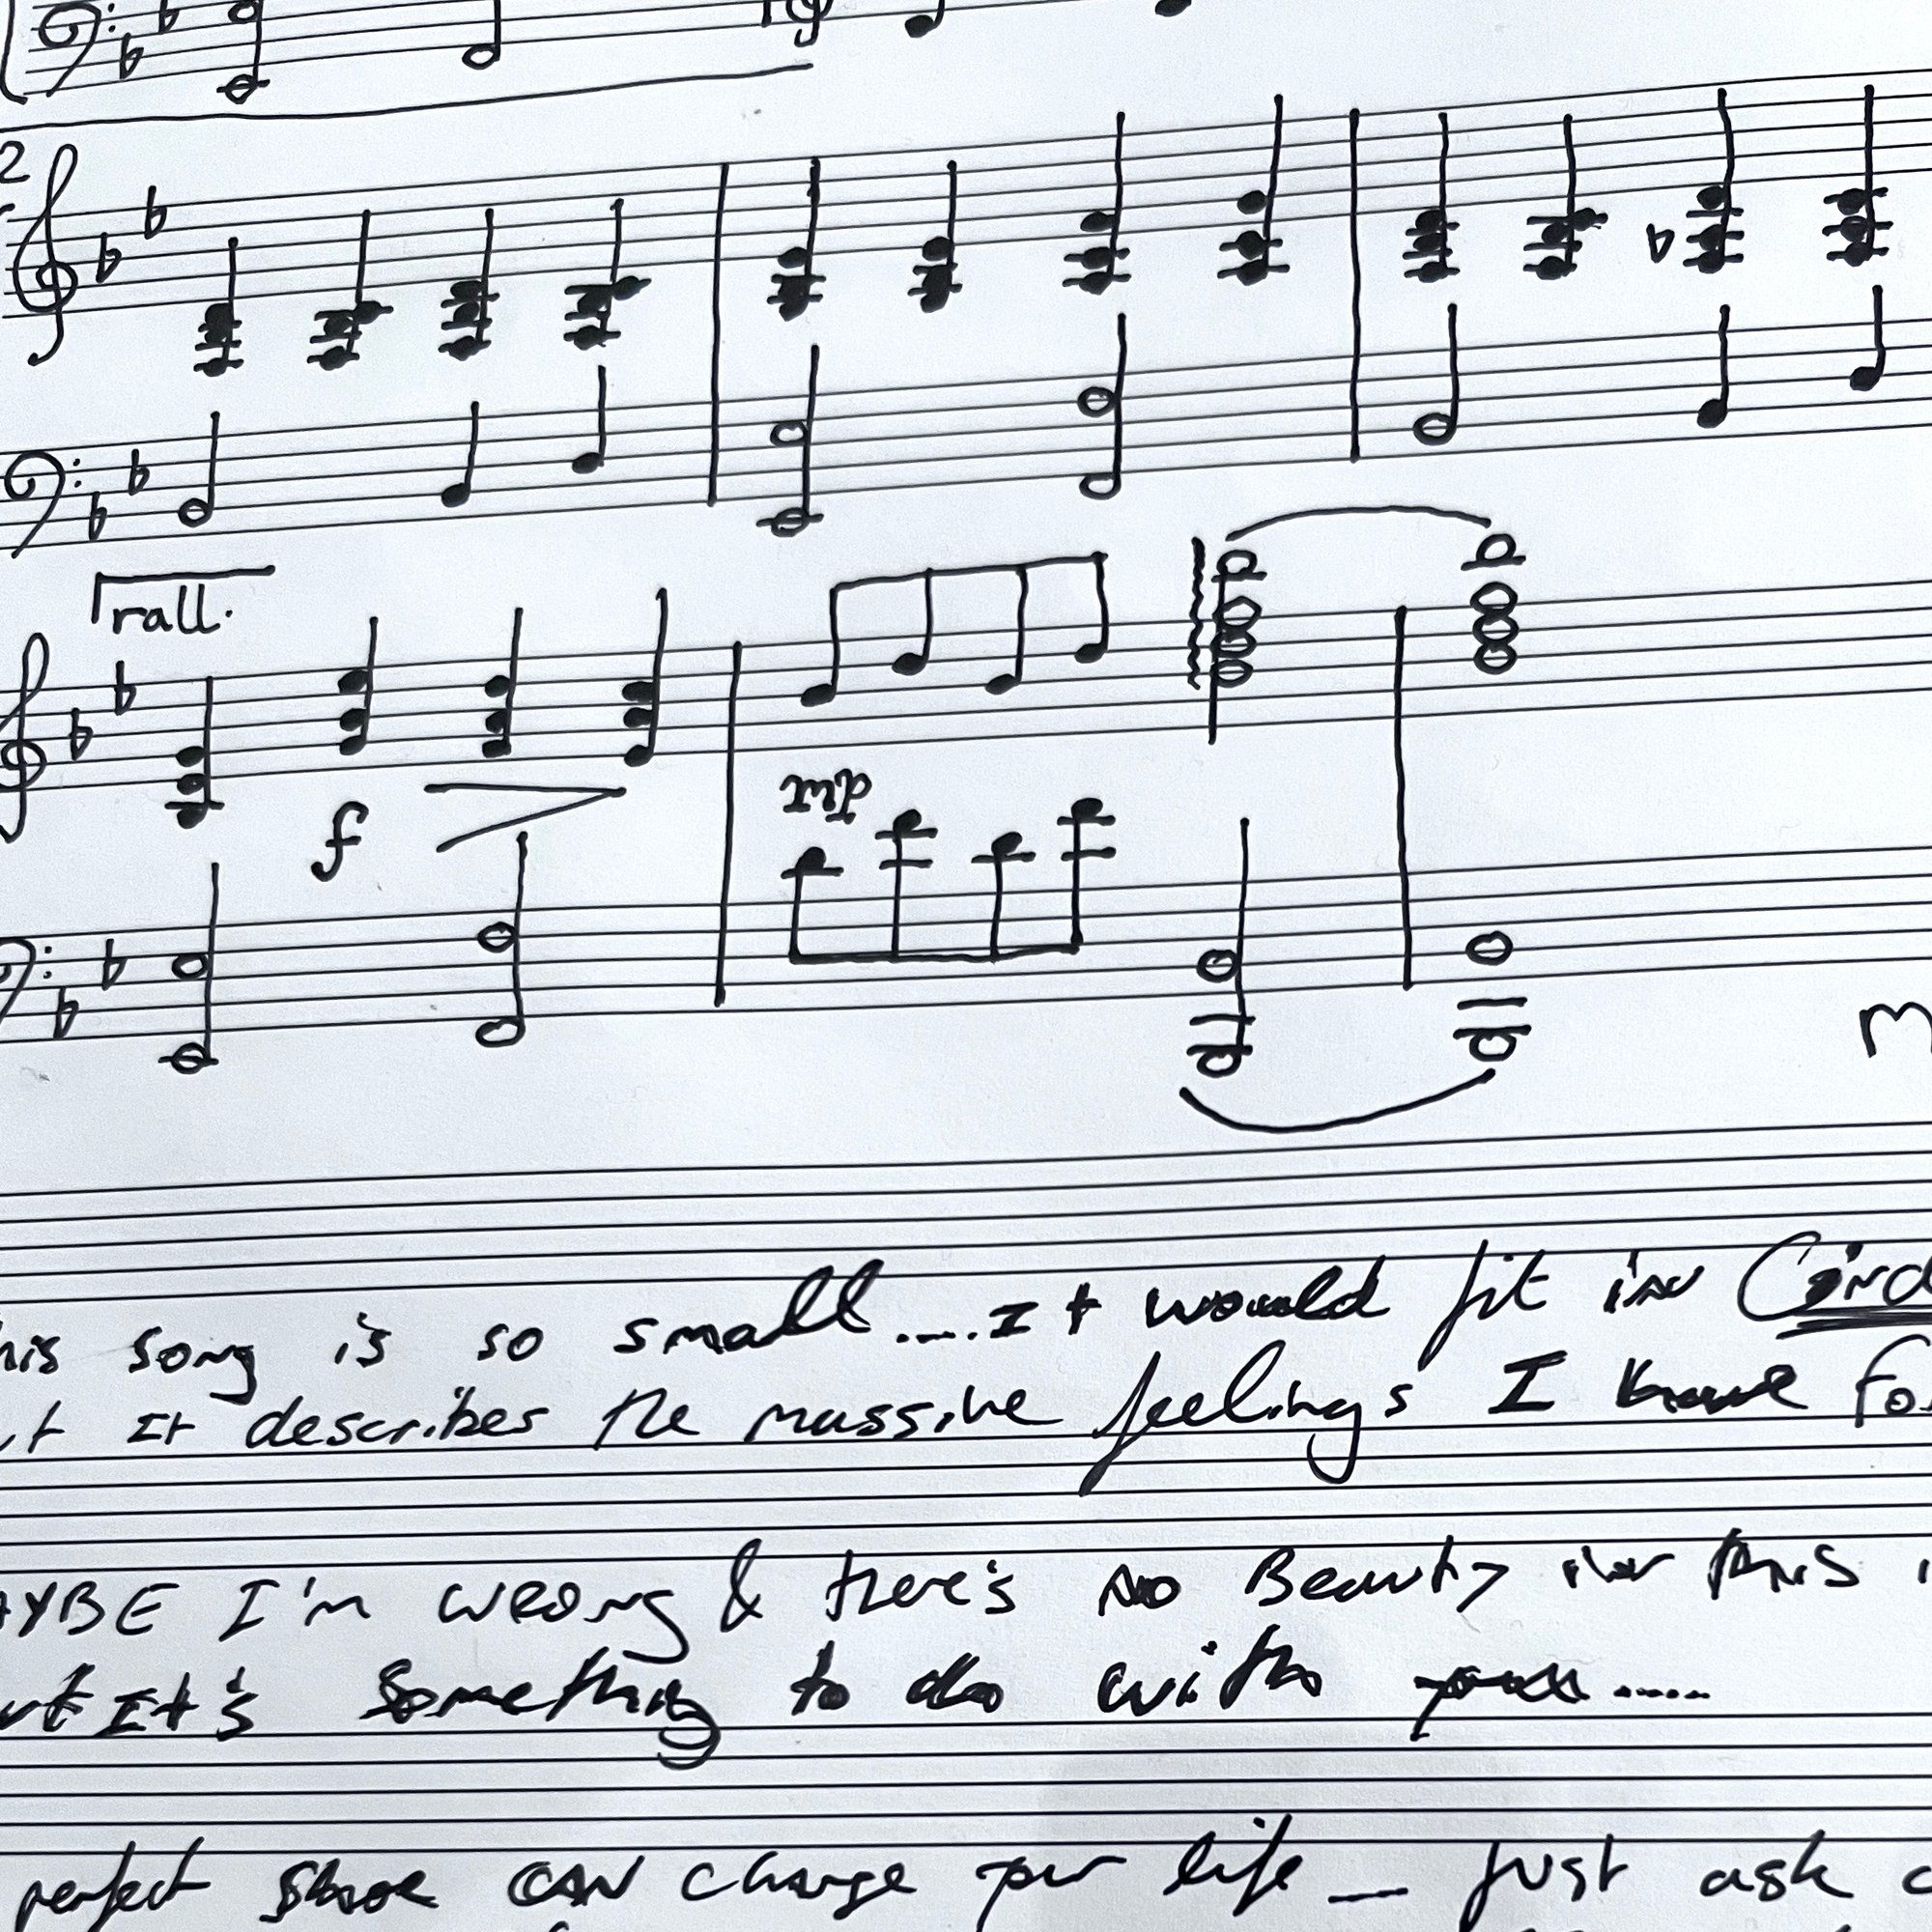 2
rall.
f
his song is so small.....It would fit in Cind
ut It describes the massive feelings I have for
M
AYBE I'm wrong & there's no Beauty in this
ut It's Something to do with you.....
perfect Shoe CAN change your life — just ask